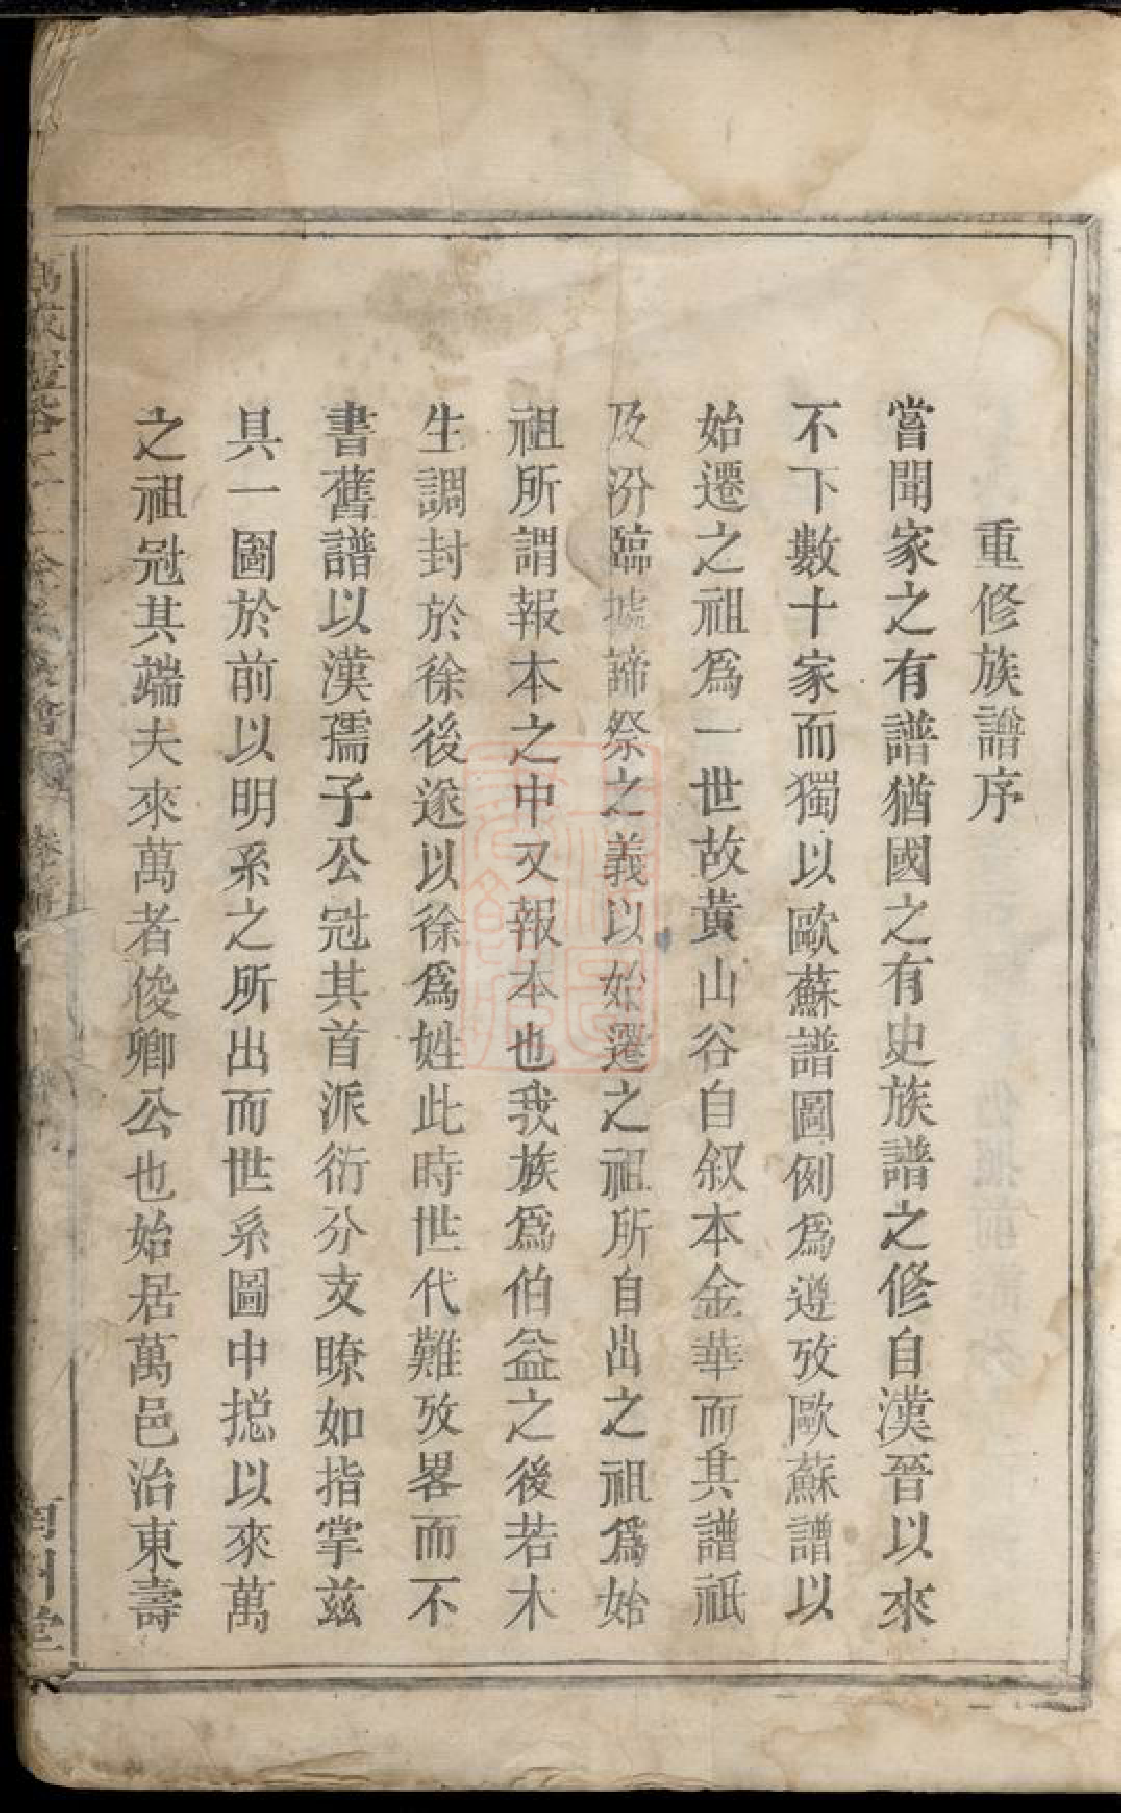 重修族譜序
嘗聞家之有譜猶國之有史族譜之修自漢晉以來
不下數十家而獨以歐蘇譜圖例爲遵攷歐蘇譜以
始遷之祖爲一世故黃山谷自叙本金華而其譜祇
及汾臨據諦祭之義以始遷之祖所自出之祖爲始
祖所謂報本之中又報本也我族爲伯益之後若木
生調封於徐後遂以徐爲姓此時世代難攷畧而不
書舊譜以漢孺子公冠其首派衍分支瞭如指掌兹
具一圖於前以明系之所出而世系圖中摠以來萬
之祖冠其端夫來萬者俊卿公也始居萬邑治東壽